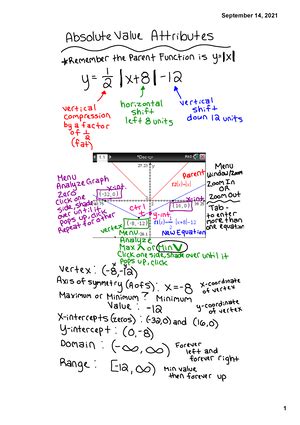 September 14, 2021
Absolute Value Attributes
*Remember the Parent Function is y=|x|
y = 1/2 |x+8| -12
vertical
compression
by a factor
of 1/2
(fat)
horizontal
shift
left 8 units
vertical
shift
down 12 units
Menu
Analyze Graph
Zero
Click one
side, shade
over until it
pops up, click
Repeat for other
x-int
(-32,0)
parent
x-int
(16,0)
ctr
y-int
vertex
(-8,-12)
New Equation
Menu
Window/Zoom
Zoom In
OR
Zoom Out
Tab -
to enter
more than
one equation
Menu
Analyze
Max Λ or Min V
Click one side, shade over until it
pops up, click
Vertex: (-8,-12)
Axis of symmetry (Aofs): x=-8 x-coordinate
of vertex
Maximum or Minimum? Minimum
Value: -12 y-coordinate
of vertex
X-intercepts (zeros): (-32,0) and (16,0)
Y-intercept: (0,-8)
Domain: (-∞,∞) Forever
left and
forever right
Range: [-12,∞) Min value
then forever up
1